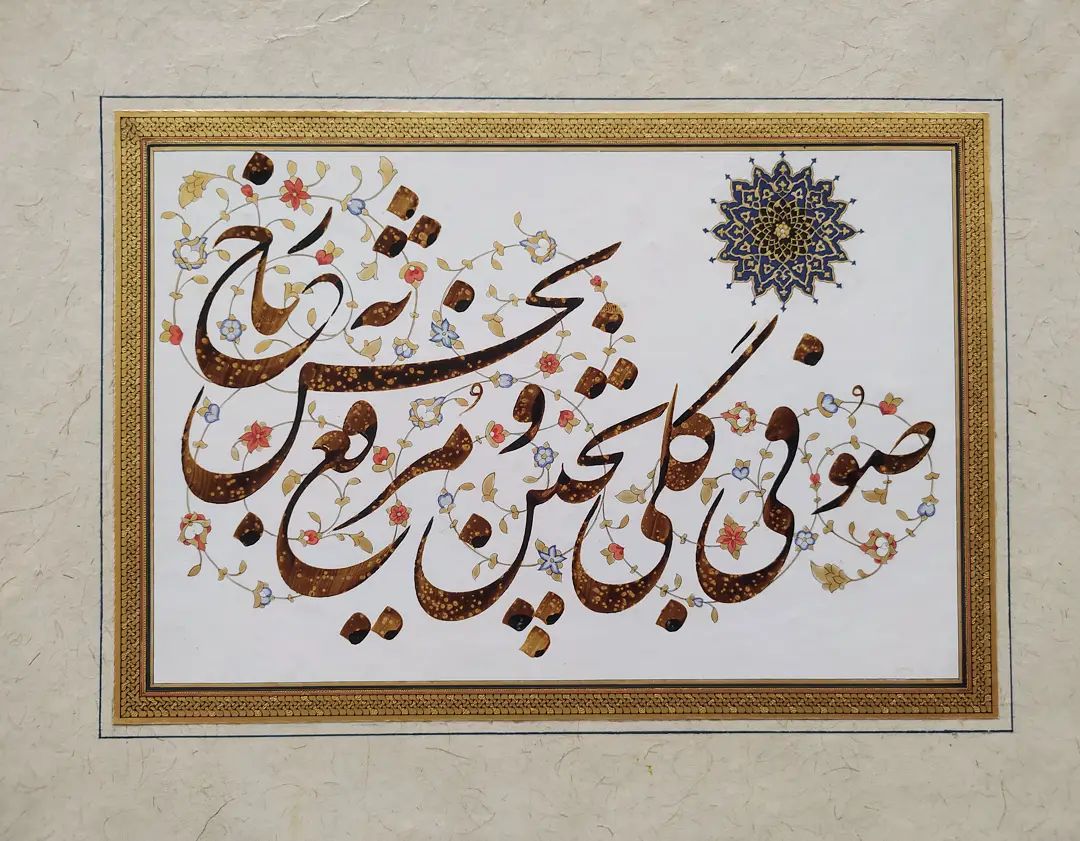 صُوفی گلی بچین و مُرقع بخار بخش